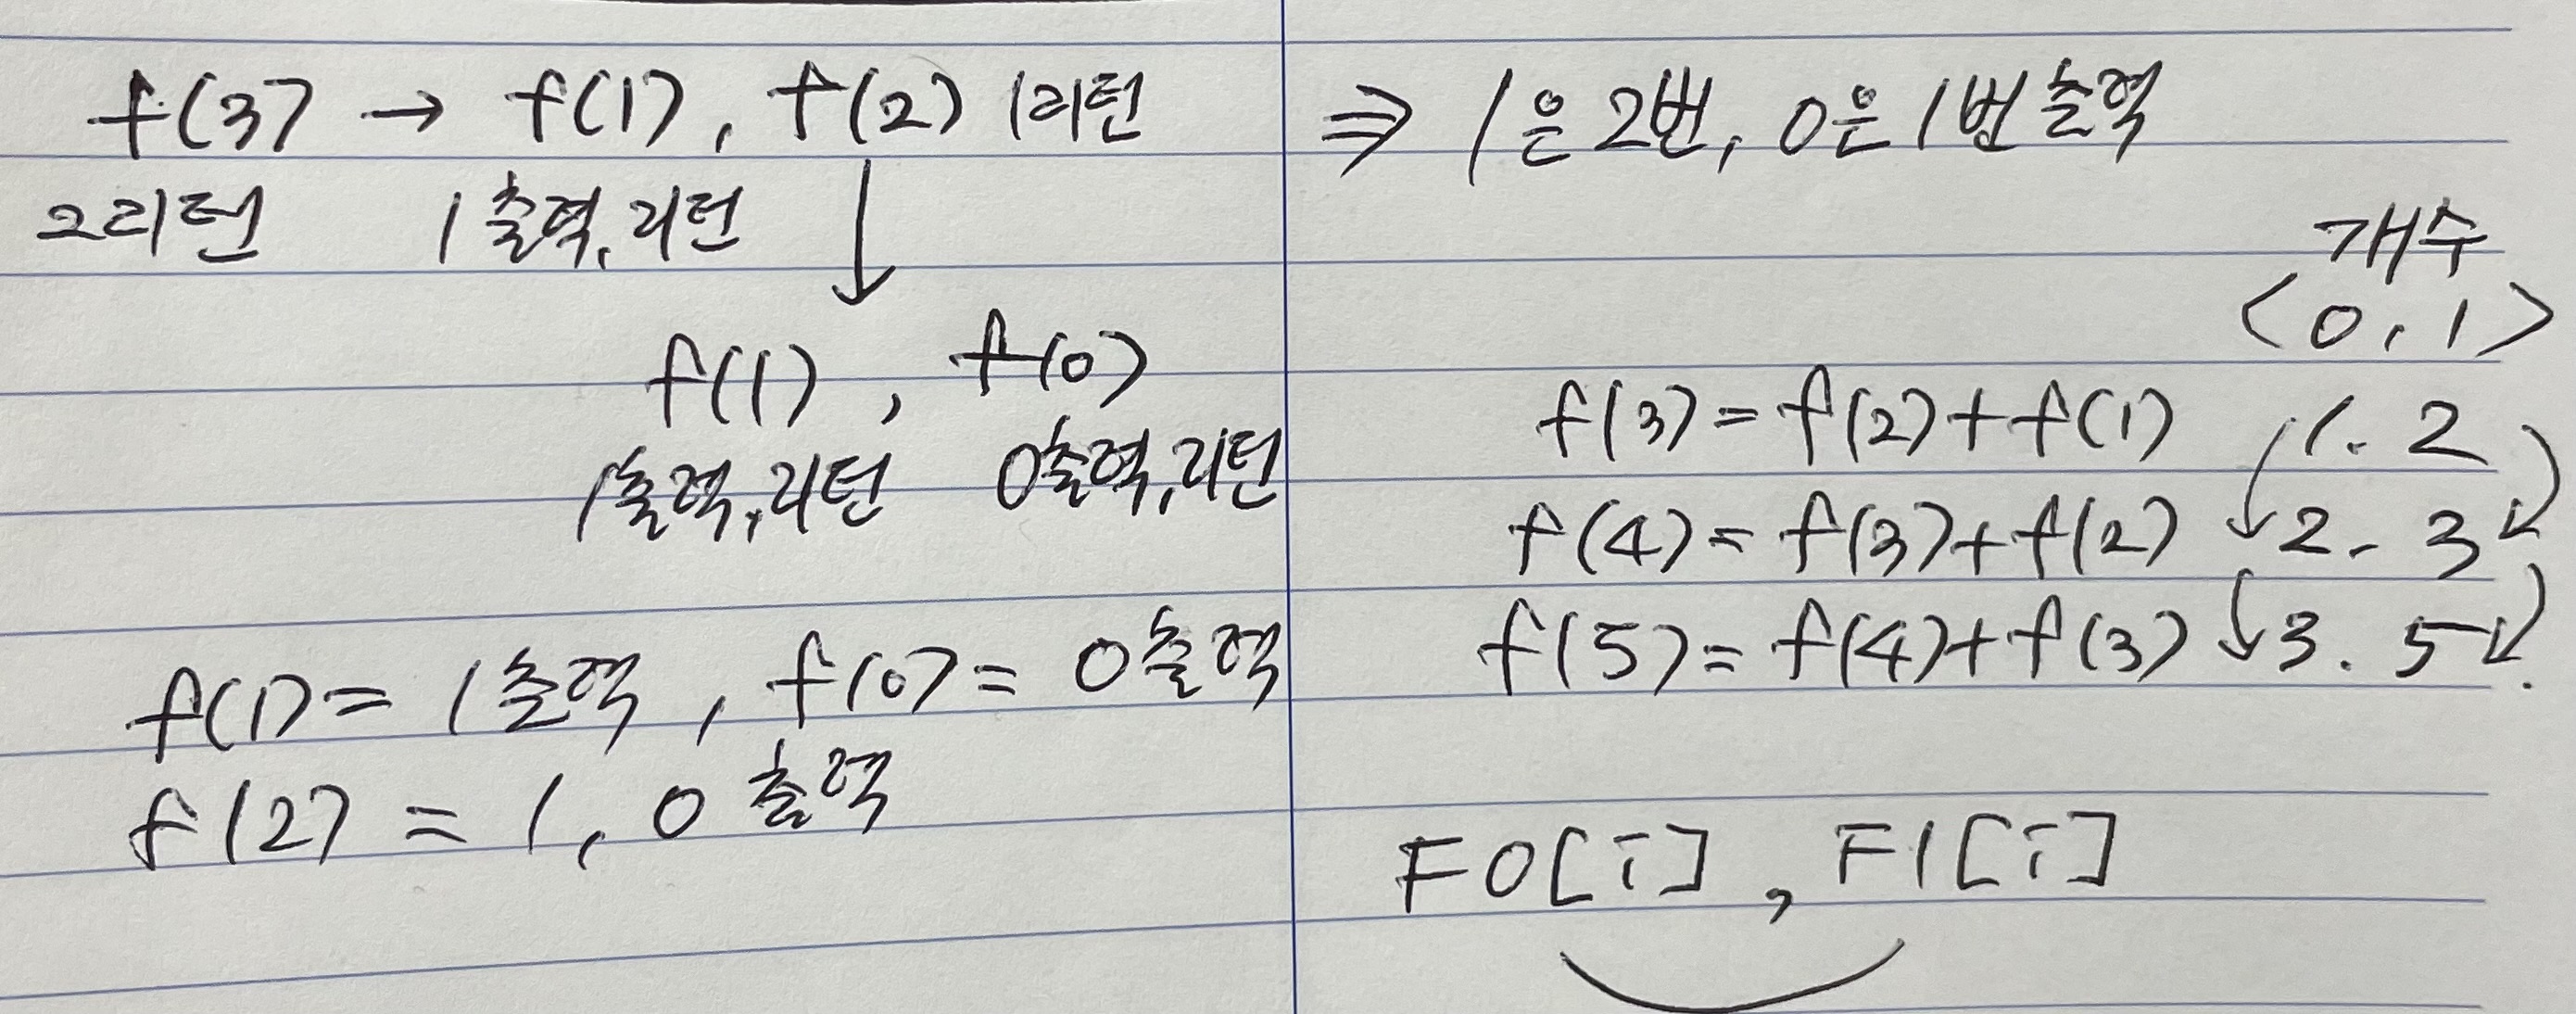 f(3) → f(1), f(2) 1리턴
2리턴 1출력,리턴
f(1), f(0)
1출력,리턴 0출력,리턴
f(1) = 1출력, f(0) = 0출력
f(2) = 1, 0 출력
⇒ 1은 2번, 0은 1번 출력
개수
<0, 1>
f(3) = f(2) + f(1) 1. 2
f(4) = f(3) + f(2) 2. 3
f(5) = f(4) + f(3) 3. 5
F0[i], F1[i]